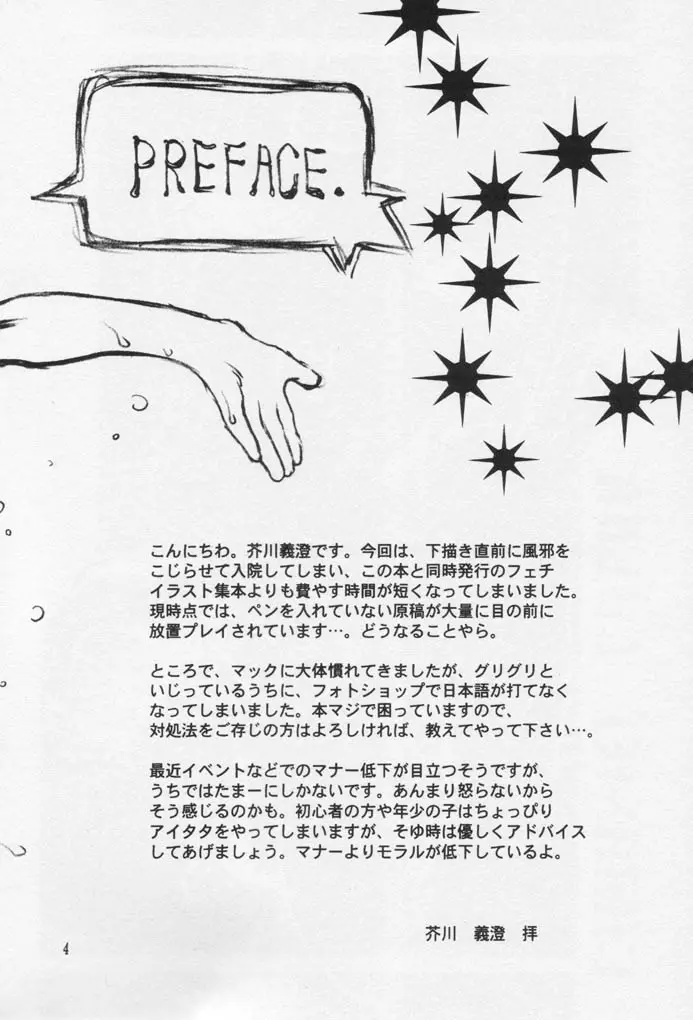 PREFACE.
こんにちわ。芥川義澄です。今回は、下描き直前に風邪を
こじらせて入院してしまい、この本と同時発行のフェチ
イラスト集本よりも費やす時間が短くなってしまいました。
現時点では、ペンを入れていない原稿が大量に目の前に
放置プレイされています…。どうなることやら。
ところで、マックに大体慣れてきましたが、グリグリと
いじっているうちに、フォトショップで日本語が打てなく
なってしまいました。本マジで困っていますので、
対処法をご存じの方はよろしければ、教えてやって下さい…。
最近イベントなどでのマナー低下が目立つそうですが、
うちではたまーにしかないです。あんまり怒らないから
そう感じるのかも。初心者の方や年少の子はちょっぴり
アイタタをやってしまいますが、そゆ時は優しくアドバイス
してあげましょう。マナーよりモラルが低下しているよ。
芥川 義澄 拝
4